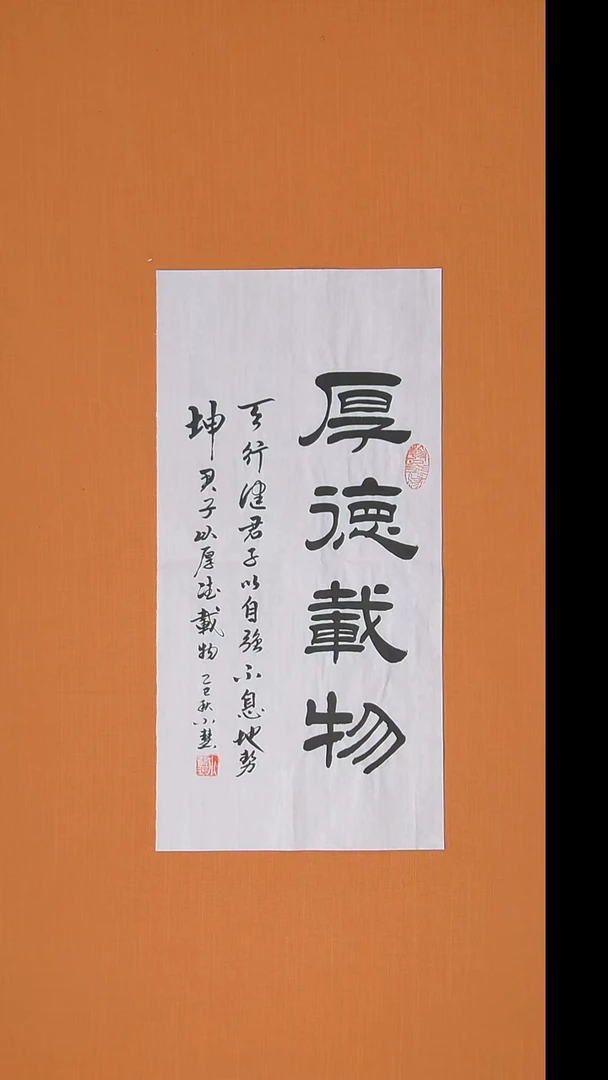 厚德載物
天行健君子以自強不息地势
坤君子以厚德載物乙巳秋小慧